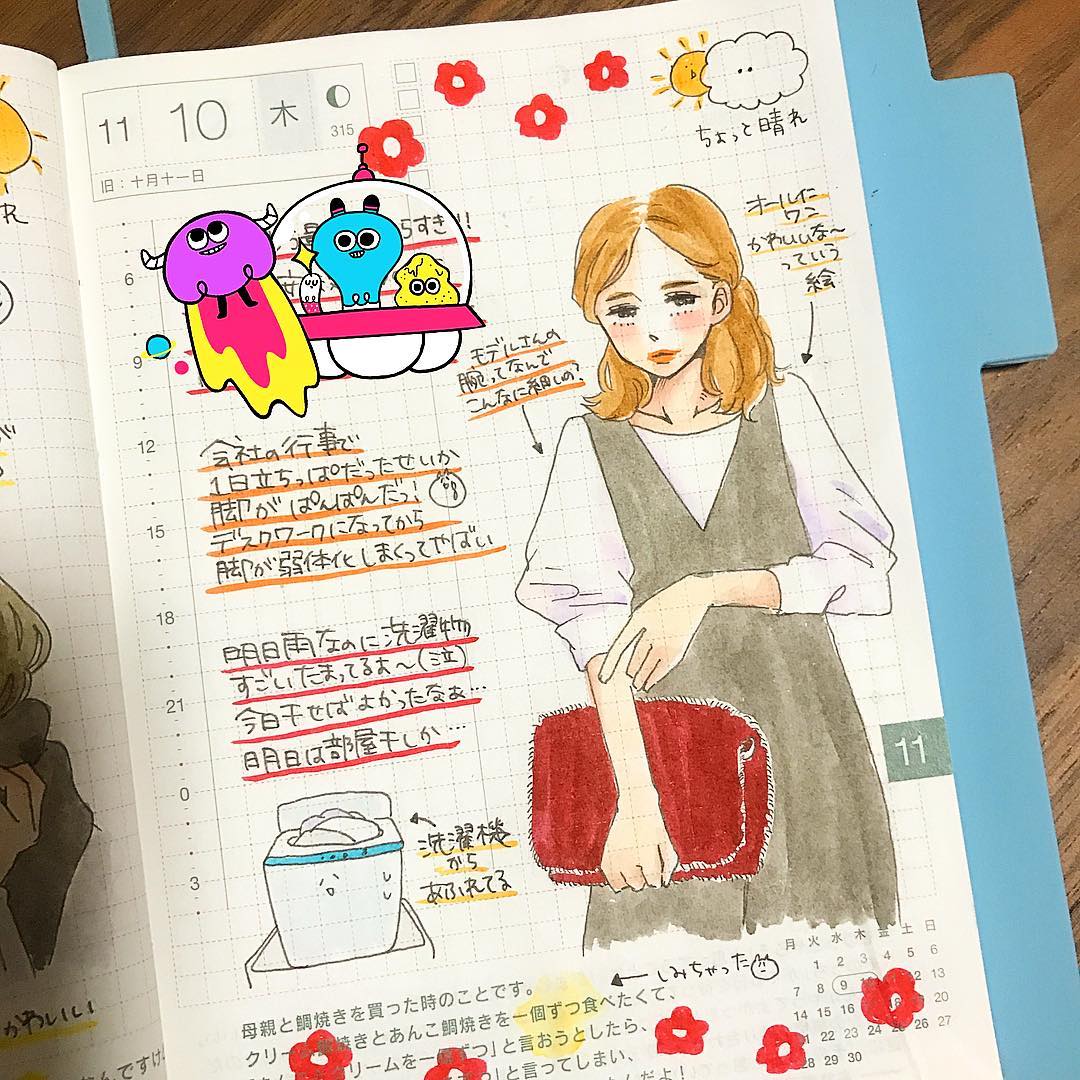 11 10 木
315
旧：十月十一日
ちょっと晴れ
らすき!!
オールインワン
かわいいな〜
っていう
絵
モデルさんの
腕ってなんで
こんなに細いの?
会社の行事で
1日立ちっぱだったせいか
脚がぱんぱんだっ!
デスクワークになってから
脚が弱体化しまくってやばい
明日雨なのに洗濯物
すごいたまってるよ〜(泣)
今日干せばよかったなぁ…
明日は部屋干しか…
洗濯機
から
あふれてる
6
9
12
15
18
21
0
3
11
しみちゃった
母親と鯛焼きを買った時のことです。
クリーム鯛焼きとあんこ鯛焼きを一個ずつ食べたくて、
クリームを一個ずつ」と言おうとしたら、
と言ってしまい、
んだよ！
月 火 水 木 金 土 日
1 2 3 4 5 6
7 8 9 12 13
14 15 16 20
21 22 23 24 25 26 27
28 29 30
かわいい